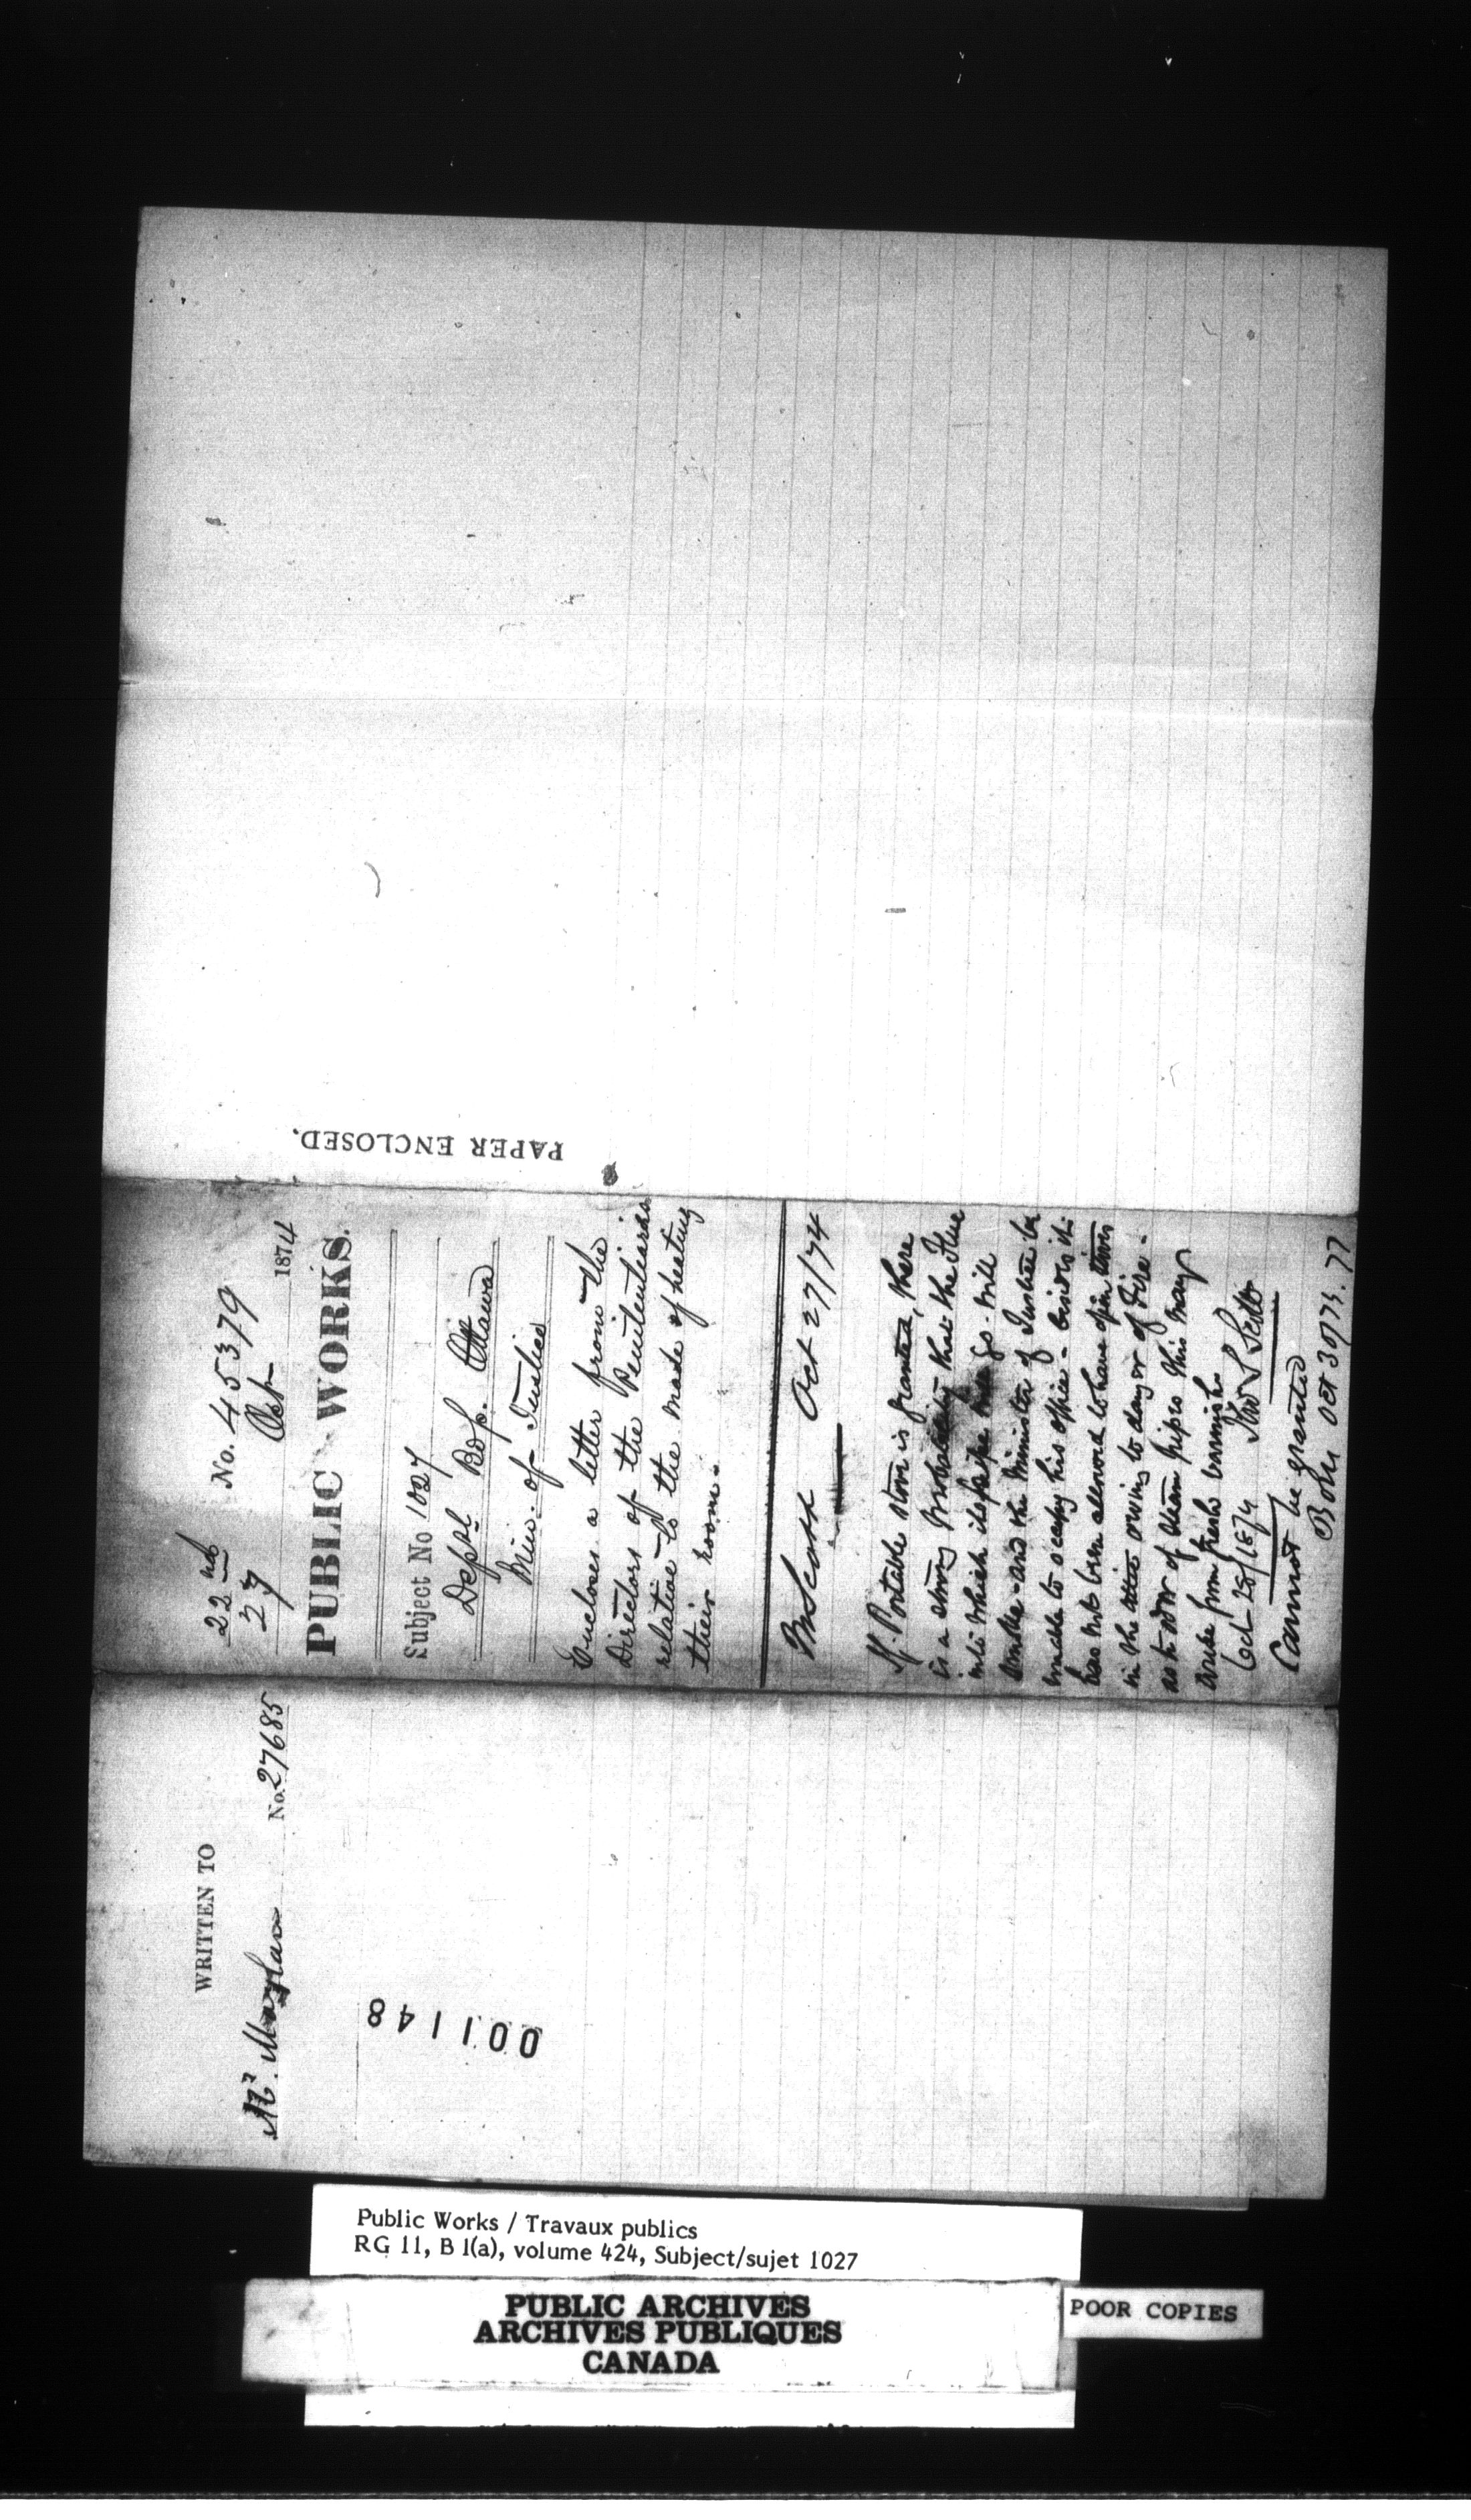 PAPER ENCLOSED.
22nd
27
No. 45379
Oct
1874
PUBLIC WORKS.
Subject No 1027
Dept Bdgs. Ottawa
Min. of Justice
Encloses a letter from the
Directors of the Penitentiaries
relative to the mode of heating
their room.
Mr Scott Oct 27/74
If Portable stove is granted, there
is a strong probability that the flue
into which its pipe may go will
smoke and the Minister of Justice be
unable to occupy his office - besides it
has not been allowed to have open stoves
in the attic owing to danger of fire -
as to odor of steam pipes this may
arise from fresh varnish
Oct 28/1874 Thos S Scott
Cannot be granted
Oct 30
WRITTEN TO
No. 27685
Mr.
001148
Public Works / Travaux publics
RG 11, B 1(a), volume 424, Subject/sujet 1027
PUBLIC ARCHIVES
ARCHIVES PUBLIQUES
CANADA
POOR COPIES